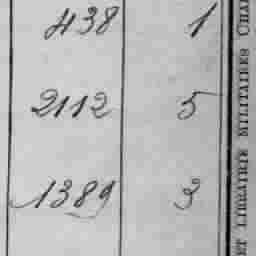 438 1
2112 5
1389 3
ET LIBRAIRIE MILITAIRES CHA